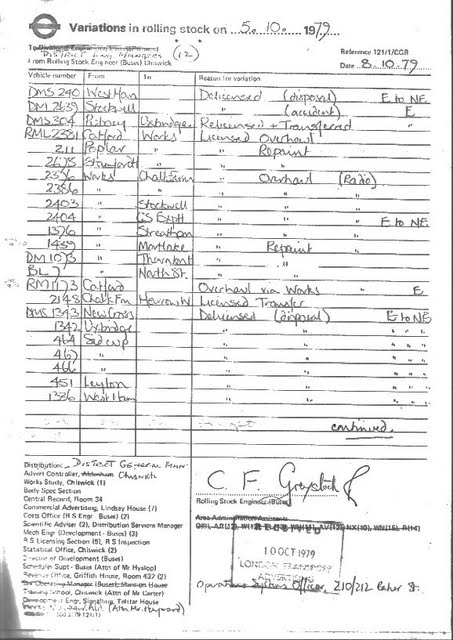 Variations in rolling stock on 5. 10. 1979
To District Eng. Managers (12)
From Rolling Stock Engineer (Buses) Chiswick
Reference 121/1/CGR
Date 8.10.79
Vehicle number From To Reason for variation
DMS 240 West Ham Delicensed (disposal) E to NE
DM 2639 Stockwell " (accident) E
DMS 304 Uxbridge Relicensed + Transferred "
RML 2331 Catford Works Licensed Overhaul
211 Poplar " " Repaint
2675 " " "
2356 Works Chalk Farm " Overhaul (Radio)
2386 " " " " "
2403 " Stockwell " " "
2404 " " " E to NE
1376 " Streatham " "
1439 " Mortlake " Repaint
DM 1073 " Thornton " "
BL 7 " North St. " "
RM 1173 Catford Overhaul via Works E
2148 Chalk Fm Harrow W Licensed Transfer
DMS 1343 New Cross Delicensed (disposal) E to NE
1342 Uxbridge " " " "
464 Sidcup " " " "
467 " " " " "
466 " " " " "
451 Leyton " " " "
1386 West Ham " " " "
continued.
Distribution: District General Man
Advert Controller, Chiswick
Works Study, Chiswick (1)
Body Spec Section
Central Record, Room 34
Commercial Advertising, Lindsay House (7)
Costs Office (R S Engr Buses) (2)
Scientific Adviser (2), Distribution Services Manager
Mech Engr (Development - Buses) (3)
R S Licensing Section (5), R S Inspection
Statistical Office, Chiswick (2)
Director of Development (Buses)
Schedules Supt - Buses (Attn of Mr Hyslop)
Revenue Office, Griffith House, Room 437 (2)
Operating Manager (Buses), Mansion House
Training School, Chiswick (Attn of Mr Carter)
Development Engr, Signalling, Telstar House
(Attn Mr Hayward)
C. F. Greystock
Rolling Stock Engineer (Buses)
Area Administration Assistants
10 OCT 1979
LONDON TRANSPORT
ADVERTISING
Operations Officer, 210/212 Baker St.